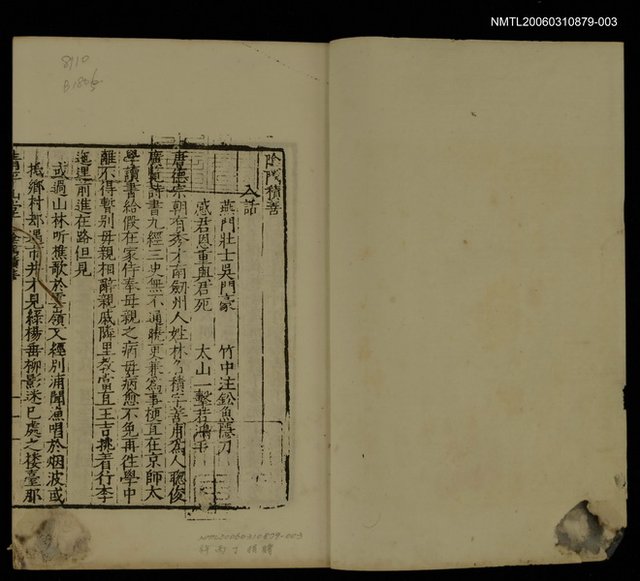 NMTL20060310879-003
8910
陰隲積善
入話
燕門壯士吳門豪 竹中注鉛魚隱刀
感君恩重與君死 太山一擊若鴻毛
唐德宗朝有秀才南劍州人姓林名積字善甫為人聰俊
廣覽詩書九經三史無不通曉更兼為事梗直在京師太
學讀書給假在家侍奉母親之病母病愈不免再往學中
離不得暫別母親相辭親戚隣里教當直王吉挑着行李
迤邐前進在路但見
或過山林听樵歌於雲嶺又經別浦聞漁唱於烟波或
抵鄉村却遇市井才見綠楊垂柳影迷已處之樓臺那
NMTL20060310879-003